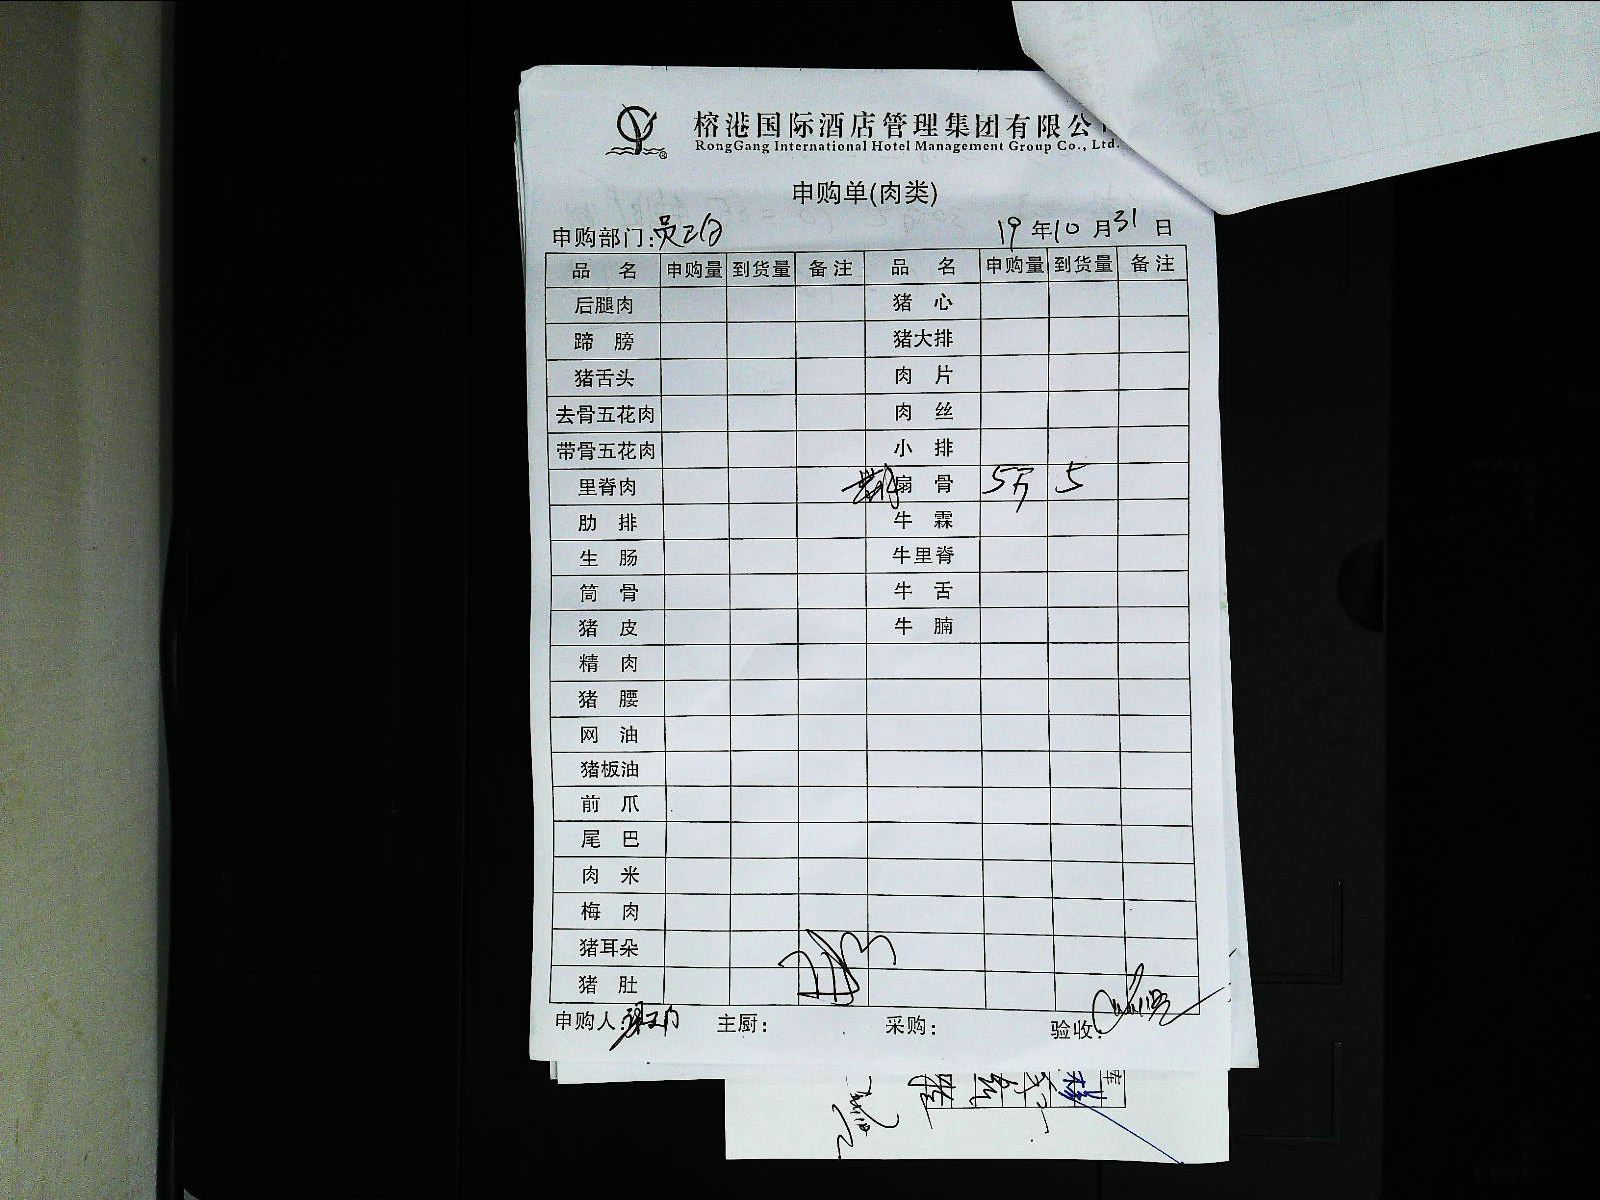 榕港国际酒店管理集团有限公
RongGang International Hotel Management Group Co., Ltd.
申购单(肉类)
申购部门: 员工 19 年 10 月 31 日
品 名 申购量 到货量 备注 品 名 申购量 到货量 备注
后腿肉 猪 心
蹄 膀 猪大排
猪舌头 肉 片
去骨五花肉 肉 丝
带骨五花肉 小 排
里脊肉 扇 骨 5斤 5
肋 排 牛 霖
生 肠 牛里脊
筒 骨 牛 舌
猪 皮 牛 腩
精 肉
猪 腰
网 油
猪板油
前 爪
尾 巴
肉 米
梅 肉
猪耳朵
猪 肚
申购人: 主厨: 采购: 验收:
库